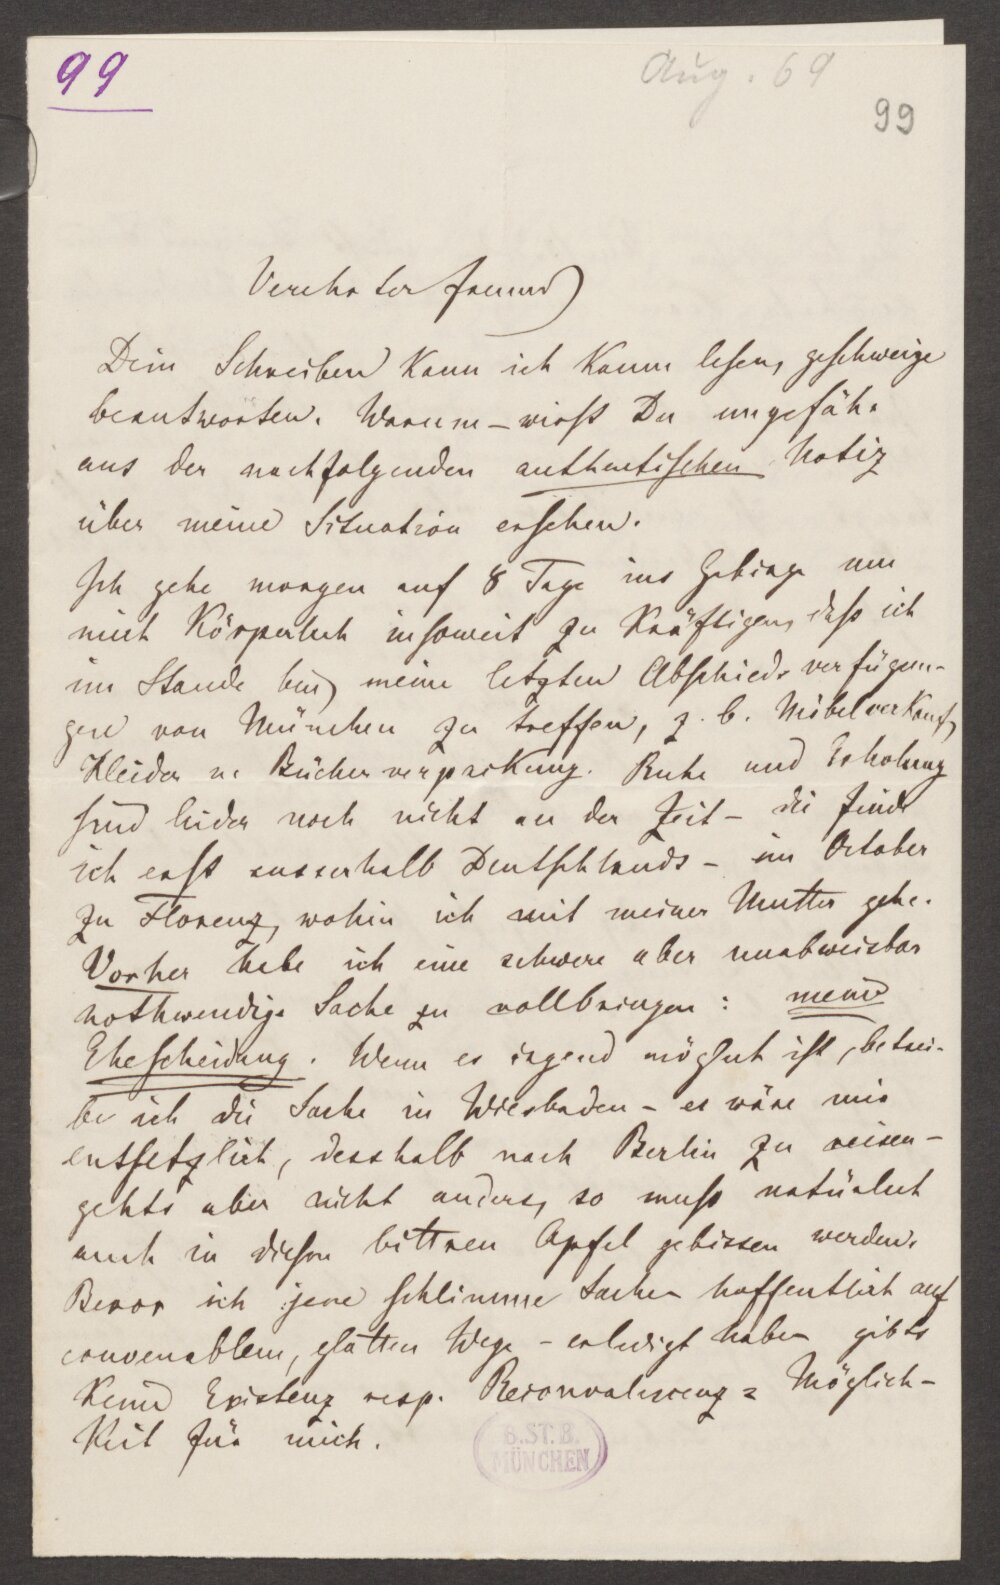 99
Aug. 69
99
Verehrter Freund
Dein Schreiben kann ich kaum lesen, geschweige
beantworten. Warum – wirst Du ungefähr
aus der nachfolgenden authentischen Notiz
über meine Situation ersehen.
Ich gehe morgen auf 8 Tage ins Gebirge um
mich körperlich insoweit zu kräftigen, daß ich
im Stande bin, meine letzten Abschiedsverfügun-
gen von München zu treffen, z. b. Möbelverkauf,
Kleider u. Bücherverpackung. Ruhe und Erholung
sind leider noch nicht an der Zeit – die finde
ich erst ausserhalb Deutschlands – im October
zu Florenz, wohin ich mit meiner Mutter gehe.
Vorher habe ich eine schwere aber unabweisbar
nothwendige Sache zu vollbringen: meine
Ehescheidung. Wenn es irgend möglich ist, betrei-
be ich die Sache in Wiesbaden – es wäre mir
entsetzlich, desshalb nach Berlin zu reisen –
gehts aber nicht anders, so muß natürlich
auch in diesen bittren Apfel gebissen werden.
Bevor ich jene schlimme Sache – hoffentlich auf
convenablem, glatten Wege – erledigt habe – gibts
keine Existenz resp. Reconvalescenz = Möglich-
keit für mich.
B.ST.B.
MÜNCHEN